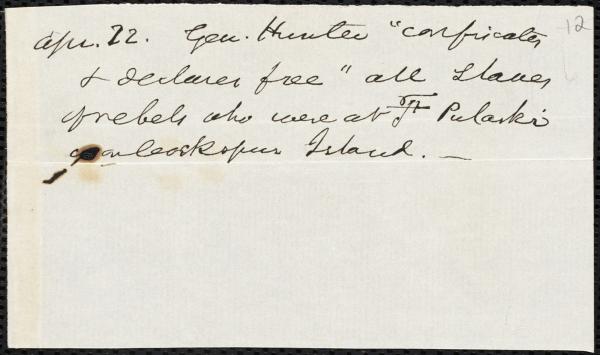 12
Apr. 22. Gen. Hunter "confiscates
& declares free" all slaves
of rebels who were at Ft Pulaski
Island. —